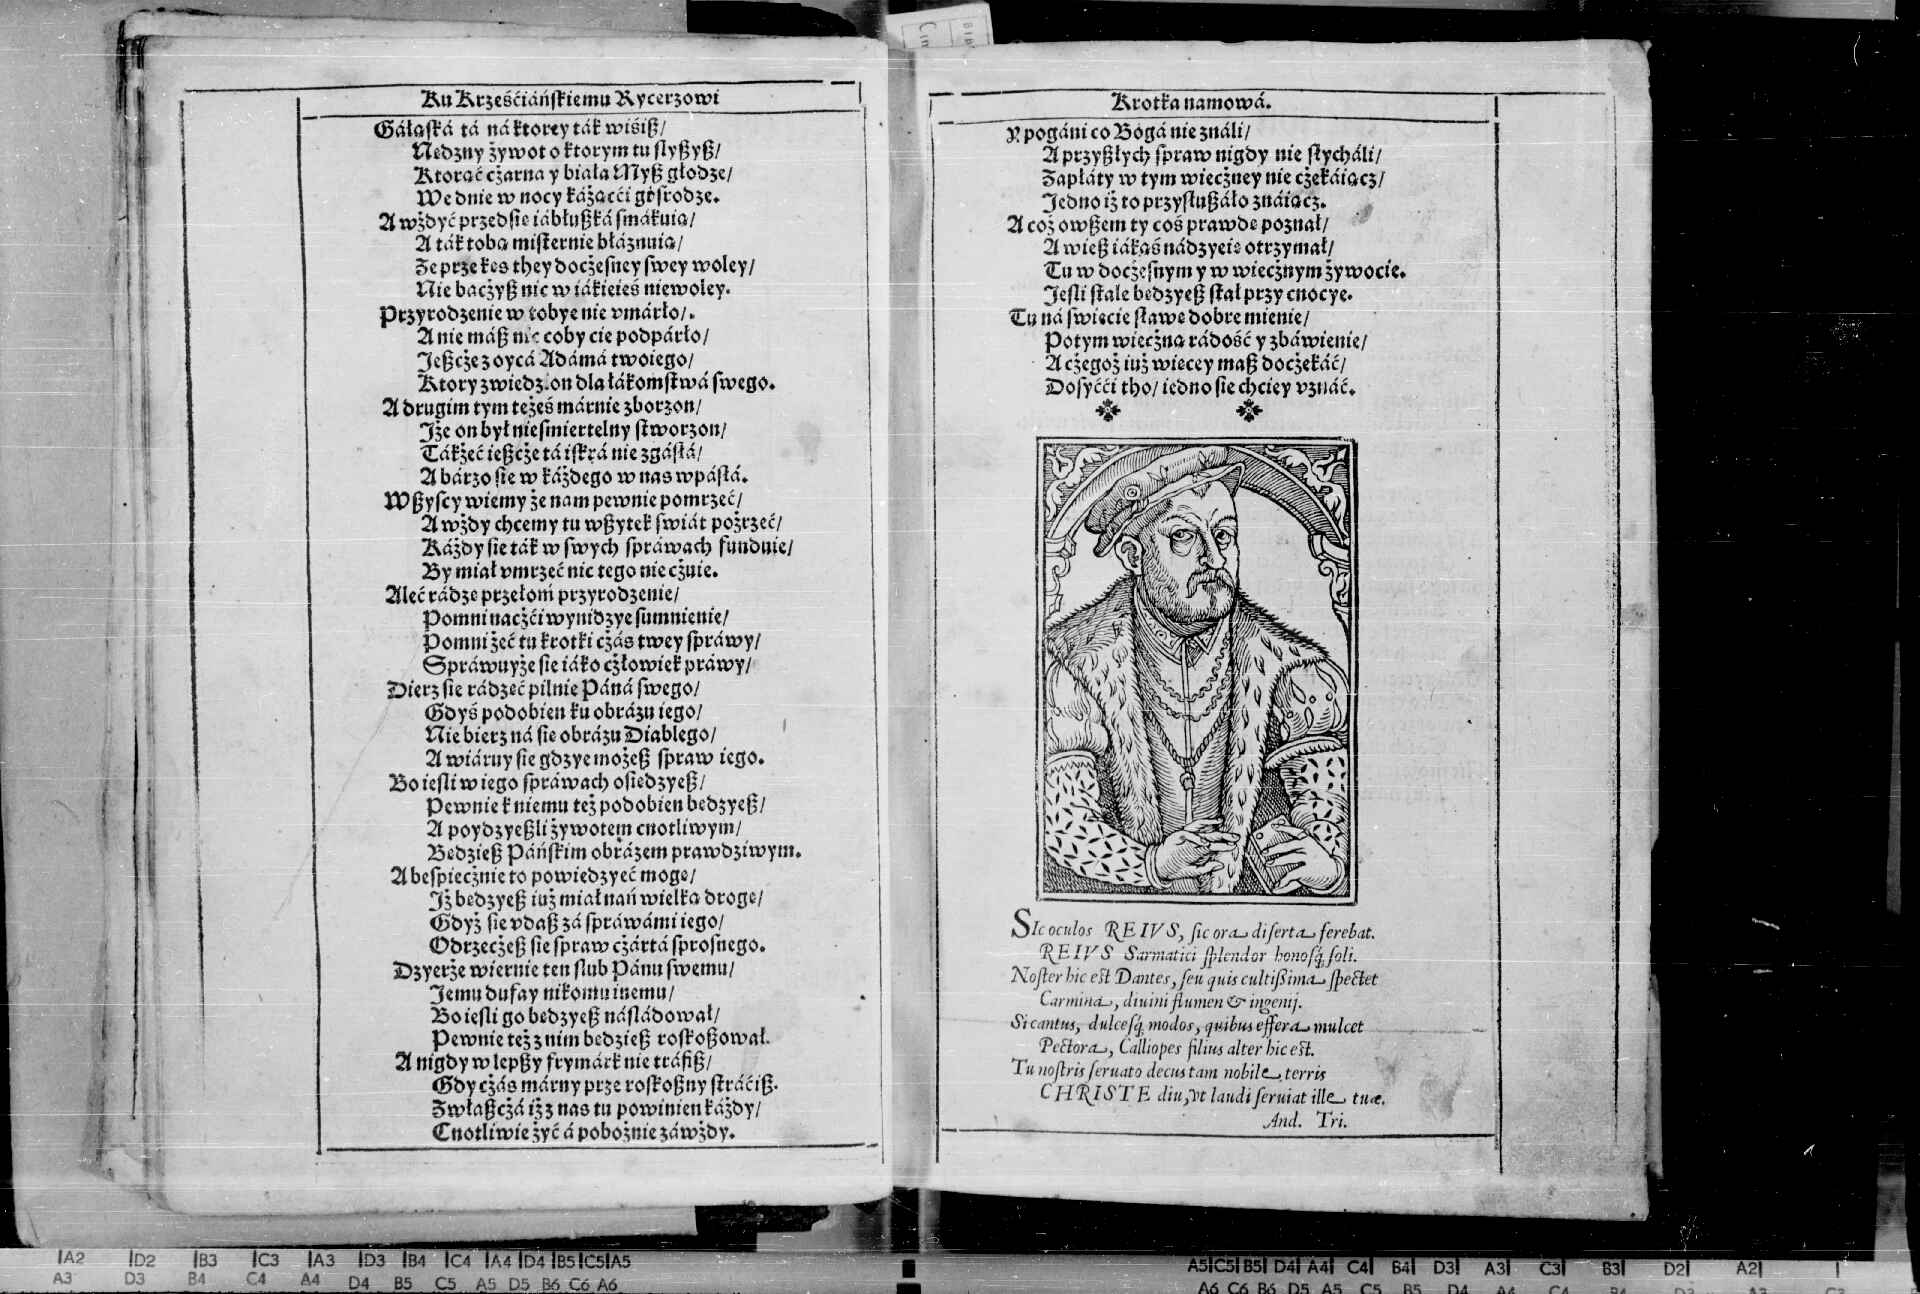 Ku Krześćiáńskiemu Rycerzowi
Gáłąská tá ná ktorey ták wiśiß/
Nędzny żywot o ktorym tu słyßyß/
Ktorąć cżarna y biała Myß głodze/
We dnie w nocy káżącći go srodze.
A wżdyć przedsię iábłußká smákuią/
A ták tobą misternie błáznuią/
Ze prze kęs they docżesney swey woley/
Nie bacżyß nic w iákieieś niewoley.
Przyrodzenie w tobye nie vmárło/.
A nie máß nic coby cię podpárło/
Jeßcże z oycá Adámá twoiego/
Ktory zwiedzion dla łákomstwá swego.
A drugim tym teżeś márnie zborzon/
Jże on był nieśmiertelny stworzon/
Tákżeć ießcże tá iskrá nie zgásłá/
A bárzo się w káżdego w nas wpásłá.
Wßyscy wiemy że nam pewnie pomrzeć/
A wżdy chcemy tu wßytek świát pożrzeć/
Káżdy się ták w swych spráwach funduie/
By miał vmrzeć nic tego nie cżuie.
Aleć rádzę przełom przyrodzenie/
Pomni nacżći wynidzye sumnienie/
Pomni żeć tu krotki cżás twey spráwy/
Spráwuyże się iáko cżłowiek práwy/
Dzierz się rádzęć pilnie Páná swego/
Gdyś podobien ku obrázu iego/
Nie bierz ná się obrázu Diablego/
A wiáruy się gdzye możeß spraw iego.
Bo iesli w iego spráwach osiędzyeß/
Pewnie k niemu też podobien będzyeß/
A poydzyeßli żywotem cnotliwym/
Będzieß Páńskim obrázem prawdziwym.
A bespiecżnie to powiedzyeć mogę/
Jż będzyeß iuż miał nań wielką drogę/
Gdyż się vdaß zá spráwámi iego/
Odrzecżeß się spraw cżártá sprosnego.
Dzyerże wiernie ten slub Pánu swemu/
Jemu dufay nikomu inemu/
Bo iesli go będzyeß násládował/
Pewnie też z nim będzieß roskoßował.
A nigdy w lepßy frymárk nie tráfiß/
Gdy cżás márny prze roskoßny stráćiß.
Zwłaßcżá iż z nas tu powinien káżdy/
Cnotliwie żyć á pobożnie záwżdy.
Krotka namowá.
Y pogáni co Bogá nie ználi/
A przyßłych spraw nigdy nie słycháli/
Zapłáty w tym wiecżney nie cżekáiącz/
Jedno iż to przysłußáło znáiącz.
A coż owßem ty coś prawdę poznał/
A wieß iákąś nádzyeię otrzymał/
Tu w docżesnym y w wiecżnym żywocie.
Jesli stale będzyeß stał przy cnocye.
Tu ná świecie sławę dobre mienie/
Potym wiecżną rádość y zbáwienie/
A cżegoż iuż więcey maß docżekáć/
Dosyćći tho/ iedno się chciey vznáć.
SIc oculos REIVS, sic ora diserta ferebat.
REIVS Sarmatici splendor honosq́; soli.
Noster hic est Dantes, seu quis cultißima spectet
Carmina, diuini flumen & ingenij.
Si cantus, dulcesq́; modos, quibus effera mulcet
Pectora, Calliopes filius alter hic est.
Tu nostris seruato decus tam nobile terris
CHRISTE diu, vt laudi seruiat ille tuæ.
And. Tri.
A2 D2 B3 C3 A3 D3 B4 C4 A4 D4 B5 C5 A5
A3 D3 B4 C4 A4 D4 B5 C5 A5 D5 B6 C6 A6
A5 C5 B5 D4 A4 C4 B4 D3 A3 C3 B3 D2 A2
A6 C6 B6 D5 A5 C5 B5 D4 A4 C4 B4 D3 A3 C3